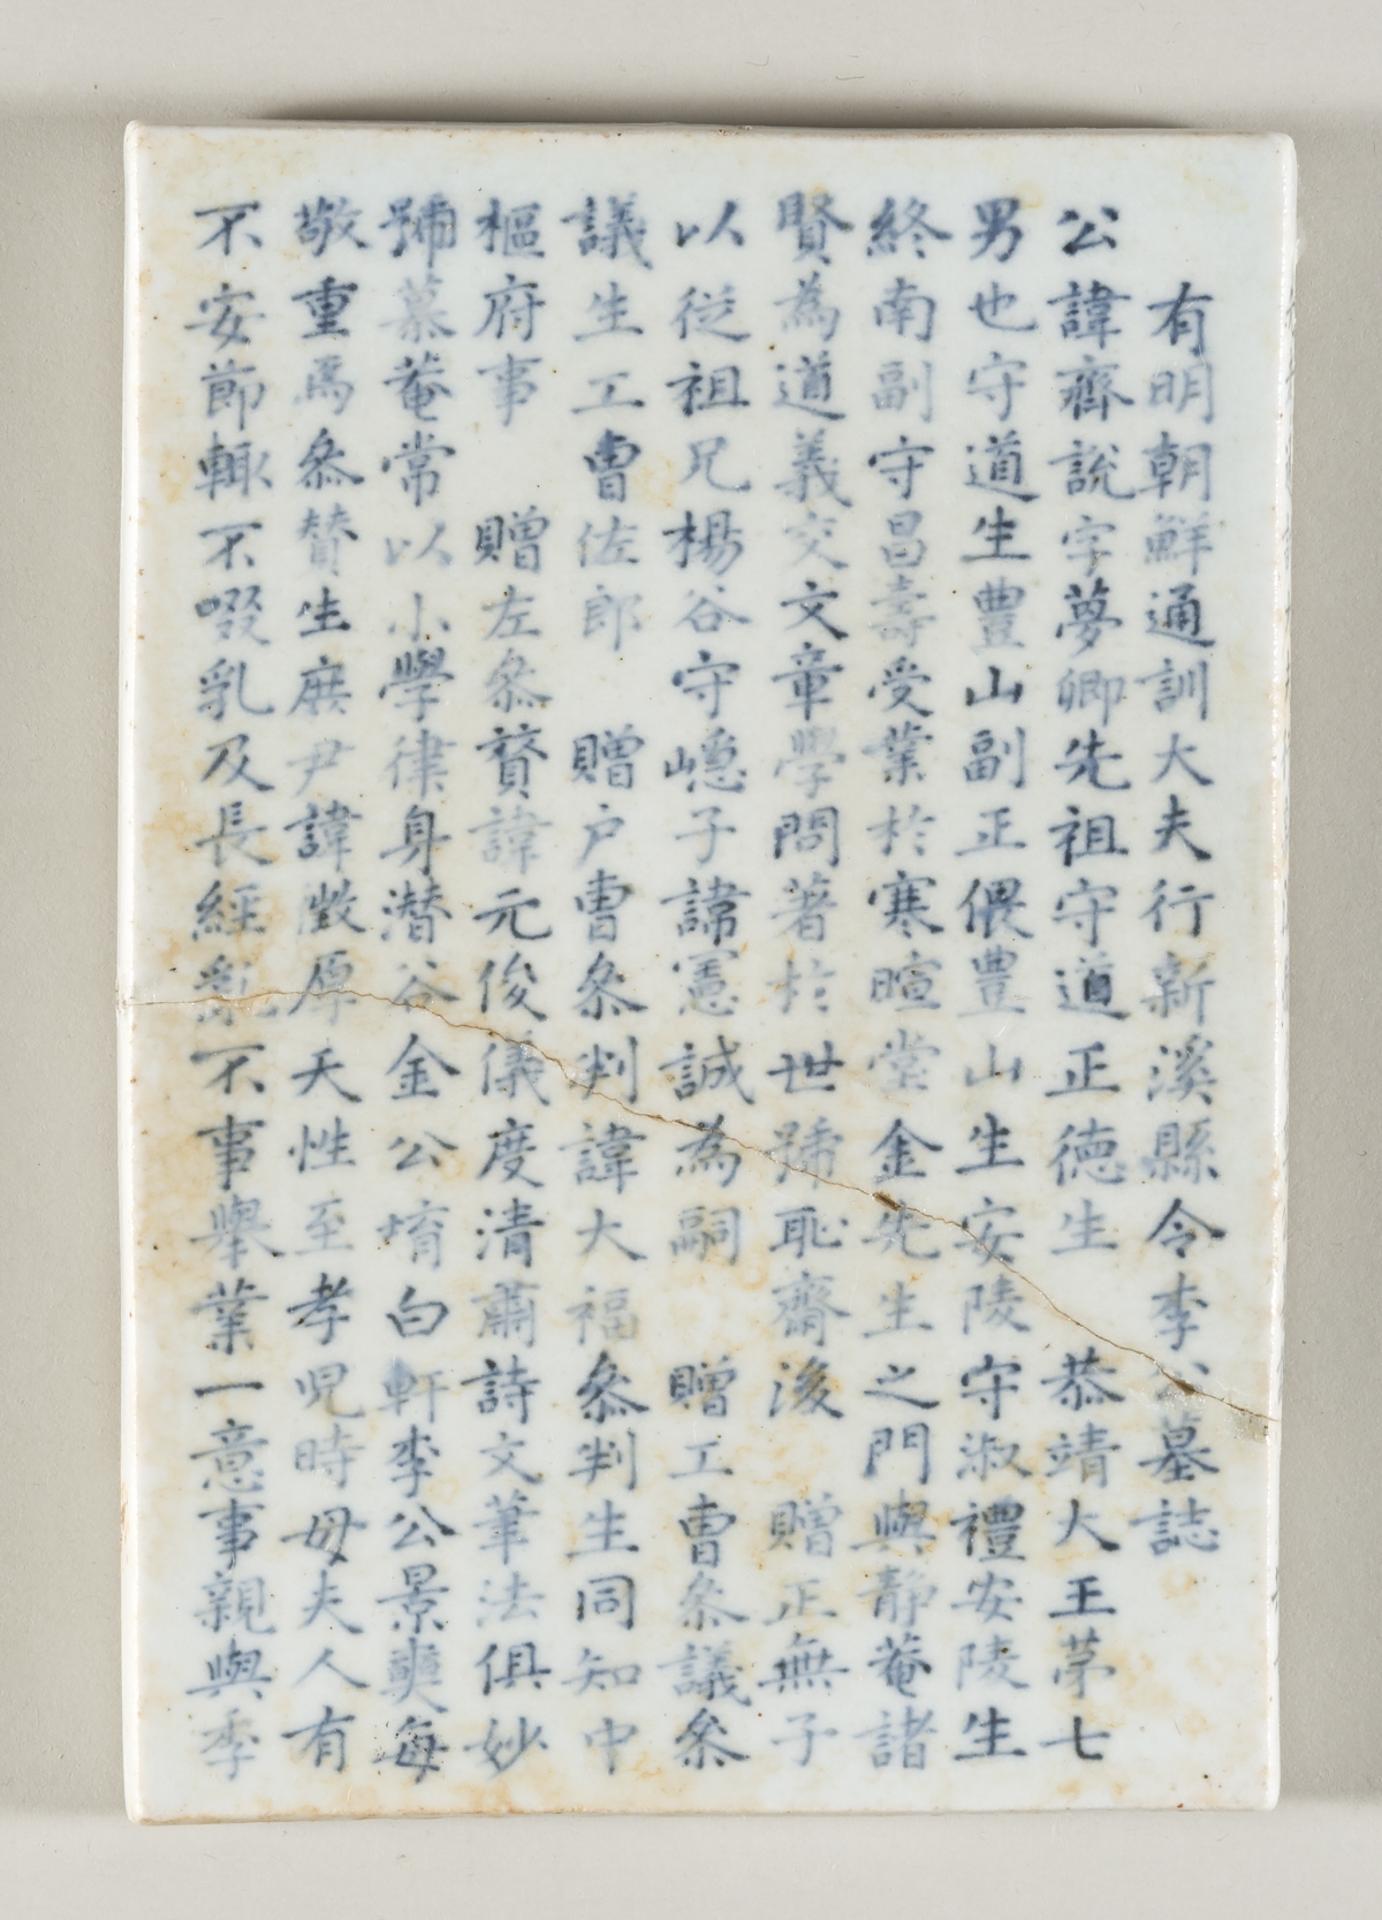 有明朝鮮通訓大夫行新溪縣令李公墓誌
公諱齊說字夢卿先祖守道正德生 恭靖大王苐七
男也守道生豊山副正偎豊山生安陵守淑禮安陵生
終南副守昌壽受業於寒暄堂金先生之門與静菴諸
賢為道義交文章學問著於世號恥齋後 贈正無子
以從祖兄楊谷守嶾子諱憲誠為嗣 贈工曹叅議叅
議生工曹佐郎 贈户曹叅判諱大福叅判生同知中
樞府事 贈左叅贊諱元俊儀度清肅詩文筆法俱妙
號慕菴常以小學律身潜谷金公堉白軒李公景奭每
敬重焉叅贊生庶尹諱㵟厚天性至孝児時母夫人有
不安節輒不啜乳及長經亂不事舉業一意事親與季